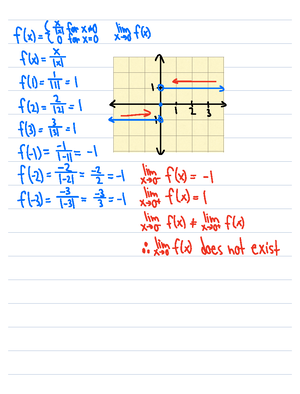 f(x) = { x/|x| for x≠0   lim x→0 f(x)
0 for x=0
f(x) = x/|x|
f(1) = 1/|1| = 1
f(2) = 2/|2| = 1
f(3) = 3/|3| = 1
f(-1) = -1/|-1| = -1
f(-2) = -2/|-2| = -2/2 = -1
f(-3) = -3/|-3| = -3/3 = -1
1
1 2 3
lim x→0⁻ f(x) = -1
lim x→0⁺ f(x) = 1
lim x→0⁻ f(x) ≠ lim x→0⁺ f(x)
∴ lim x→0 f(x) does not exist